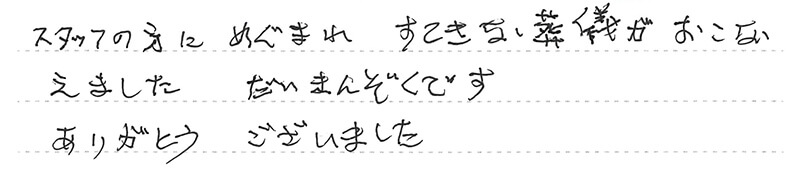 スタッフの方に めぐまれ すてきない葬儀が おこない
えました だいまんぞくです
ありがとう ございました